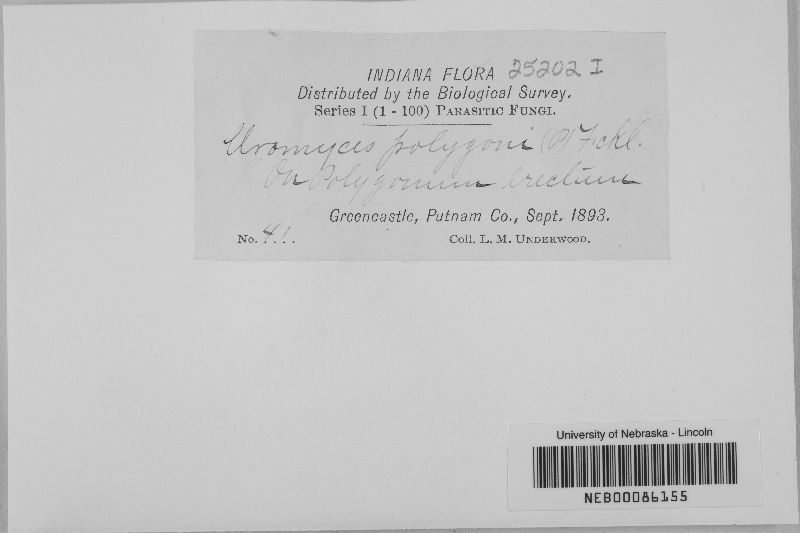 INDIANA FLORA 25202 I
Distributed by the Biological Survey.
Series I (1 - 100) PARASITIC FUNGI.
Uromyces polygoni (P) Fckl.
On Polygonum erectum
Greencastle, Putnam Co., Sept. 1893.
No. 41. Coll. L. M. UNDERWOOD.
University of Nebraska - Lincoln
NEB00086155